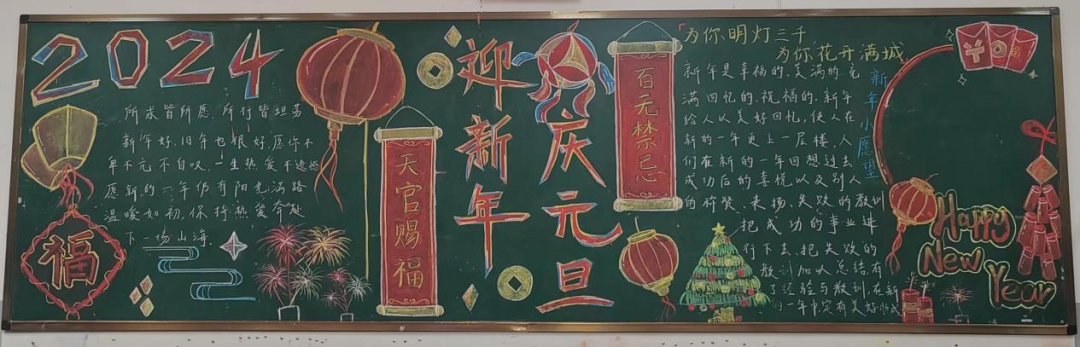 2024
所求皆所愿，所行皆坦荡
新年好，旧年也很好，愿你不
卑不亢不自叹，一生热爱不遮掩
愿新的一年仍有阳光满路
温暖如初，保持热爱奔赴
下一场山海。
福
天官赐福
迎新年
庆元旦
百无禁忌
为你明灯三千
为你花开满城
新年小愿望
新年是幸福的、美满的、充
满回忆的、祝福的，新年
给人以美好回忆，使人在
新的一年更上一层楼，人
们在新的一年回想过去
成功后的喜悦以及别人
的称赞、表扬、失败的教训
把成功的事业进
行下去，把失败的
教训加以总结，有
了经验与教训，在新
一年中定有美好的成
福
Happy
New
Year